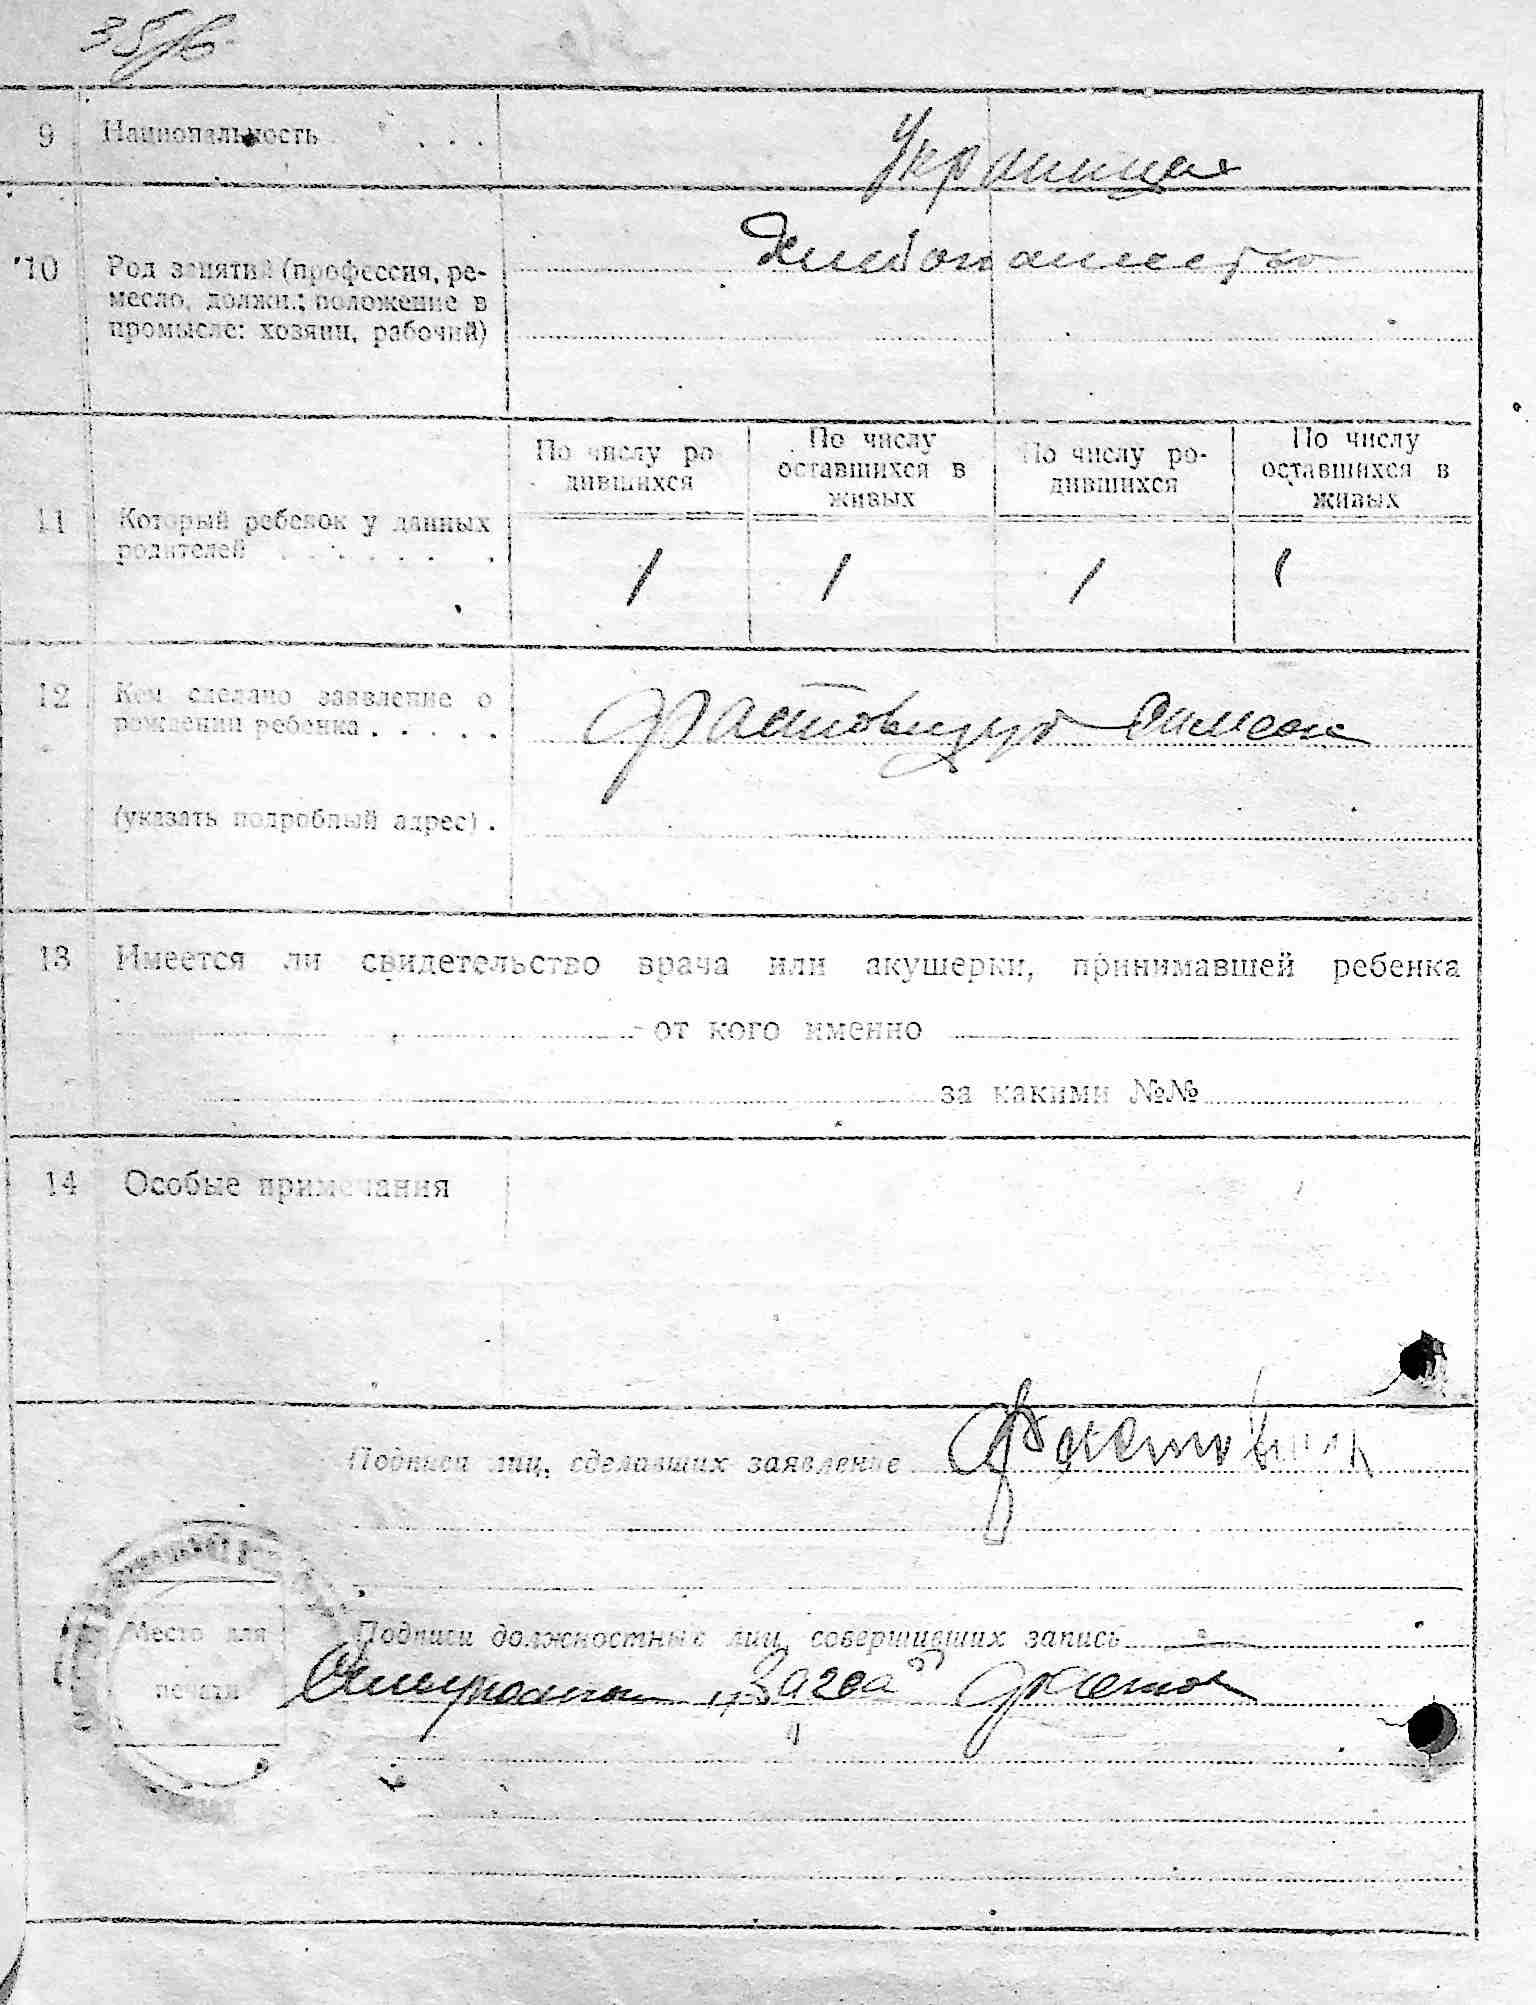 35
9 Национальность . . . Украинцы
10 Род занятий (профессия, ре-
месло, должн.; положение в
промысле: хозяин, рабочий)
Хлебопашество
По числу ро
дившихся
По числу
оставшихся в
живых
По числу ро-
дившихся
По числу
оставшихся в
живых
11 Который ребенок у данных
родителей . . . . . .
1 1 1 1
12 Кем сделано заявление о
рождении ребенка . . . . .
(указать подробный адрес) .
13 Имеется ли свидетельство врача или акушерки, принимавшей ребенка
от кого именно
за какими №№
14 Особые примечания
Подписи лиц, сделавших заявление
Место для
печати
Подписи должностных лиц, совершивших запись
„Загса"